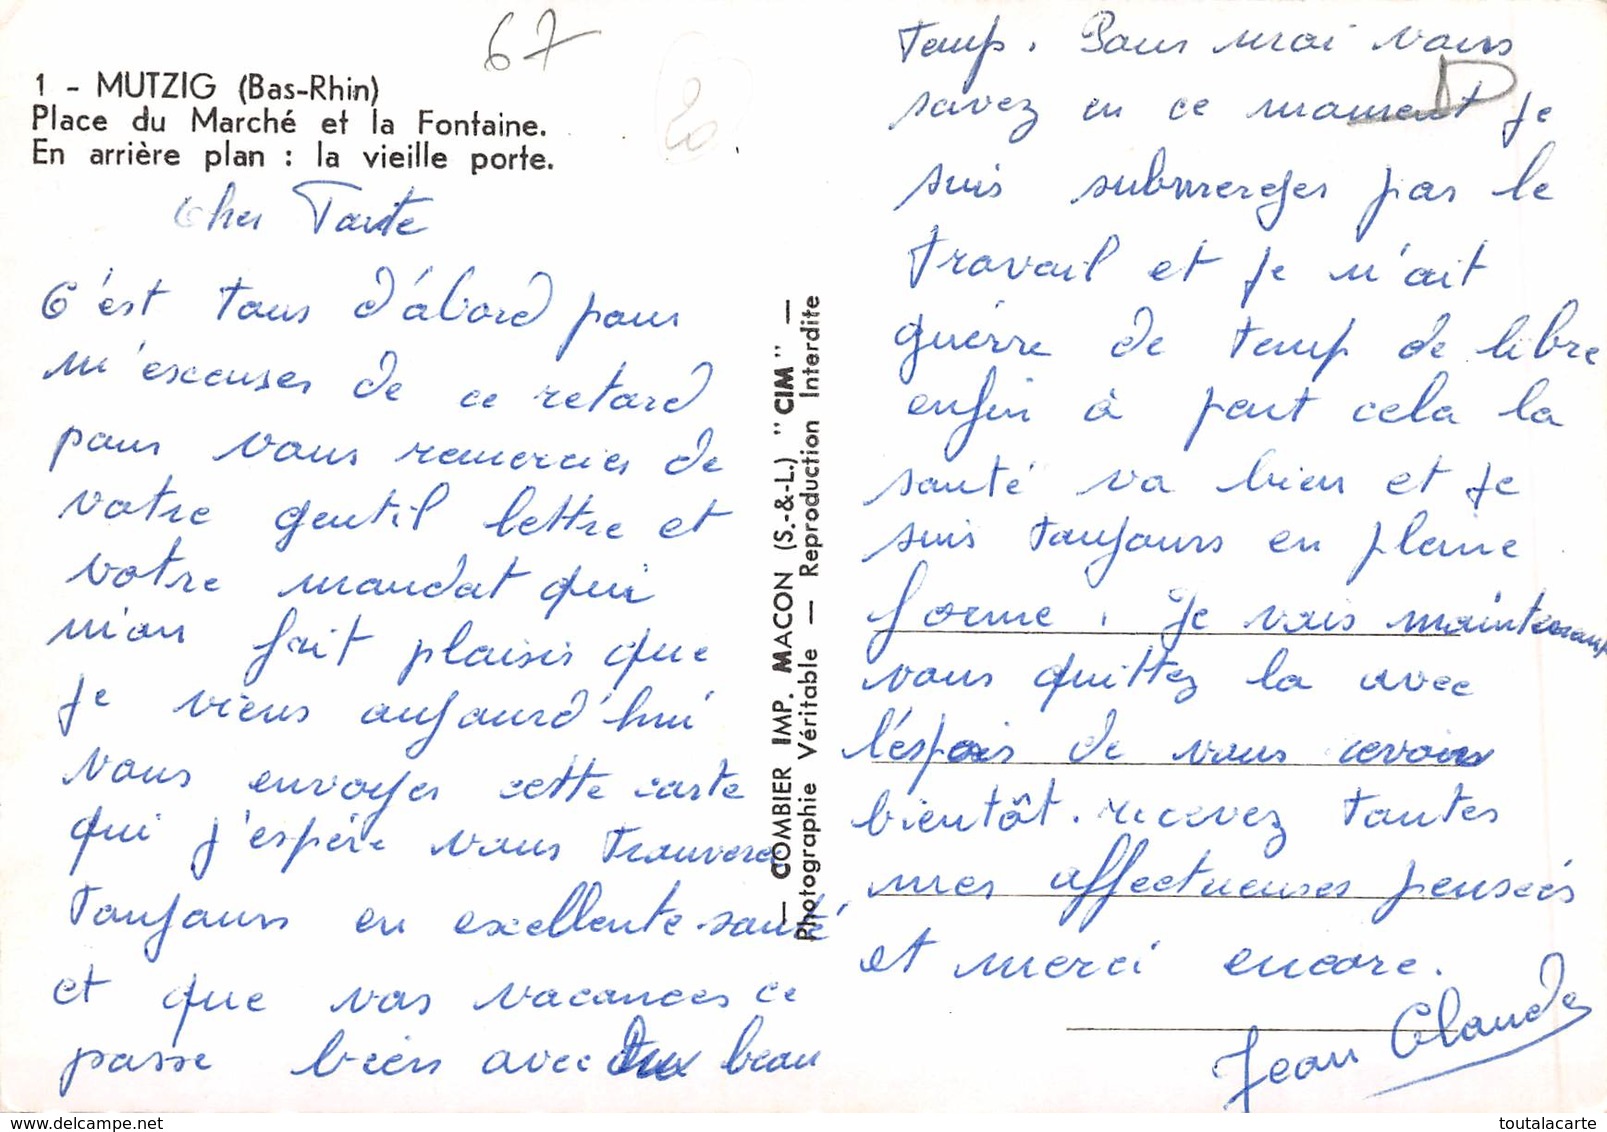 67
20
1 - MUTZIG (Bas-Rhin)
Place du Marché et la Fontaine.
En arrière plan : la vieille porte.
Cher Tante
C'est tous d'abord pour
m'excuser de ce retard
pour vous remercier de
votre gentil lettre et
votre mandat qui
m'on fait plaisir que
je viens aujourd'hui
vous envoyer cette carte
qui j'espére vous trouvera
toujours en excellente santé
et que vos vacances ce
passe bien avec du beau
— COMBIER IMP. MACON (S.-&-L.) "CIM" —
Photographie Véritable — Reproduction Interdite
temp. Pour moi vous
savez en ce moment je
suis submerger par le
travail et je n'ait
guérre de temp de libre
enfin à part cela la
santé va bien et je
suis toujours en pleine
forme. Je vais maintenant
vous quittez la avec
l'éspoir de vous revoir
bientôt. recevez toutes
mes affectueuses pensées
et merci encore.
Jean Claude
toutalacarte